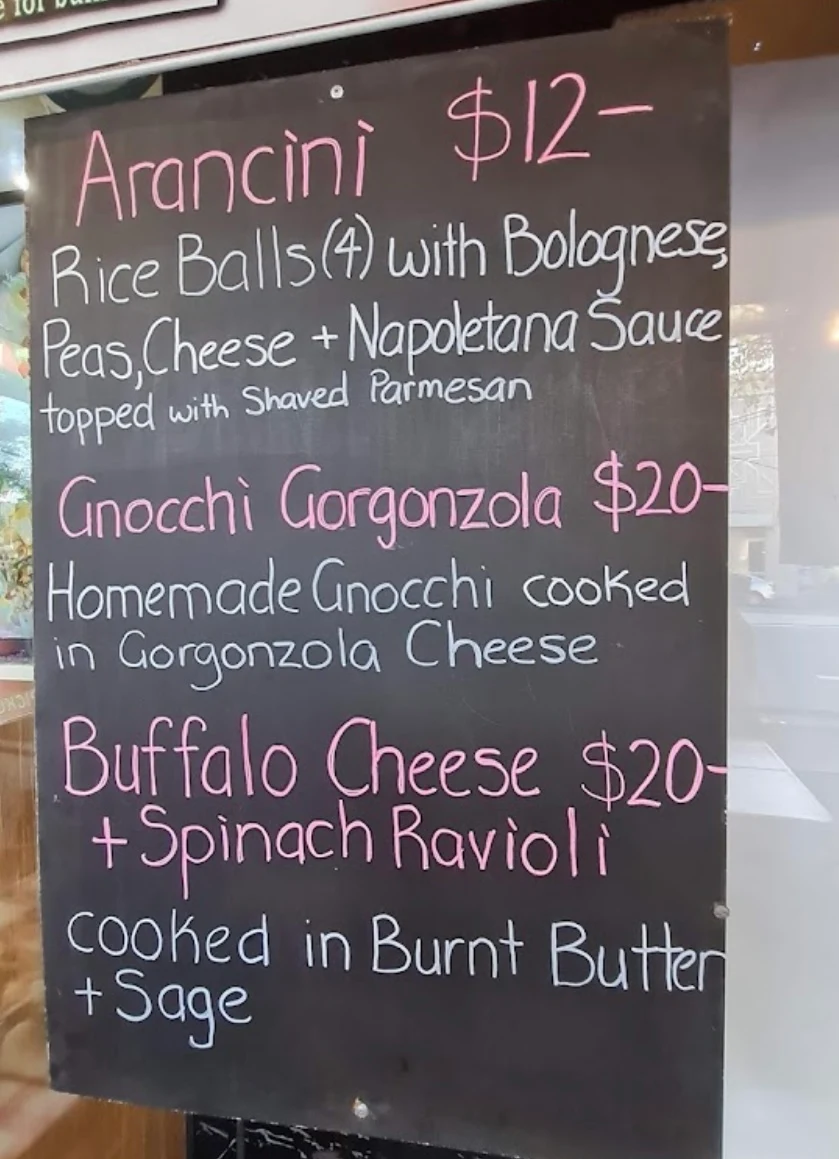 Arancini $12-
Rice Balls (4) with Bolognese,
Peas, Cheese + Napoletana Sauce
topped with Shaved Parmesan
Gnocchi Gorgonzola $20-
Homemade Gnocchi cooked
in Gorgonzola Cheese
Buffalo Cheese $20-
+ Spinach Ravioli
cooked in Burnt Butter
+ Sage